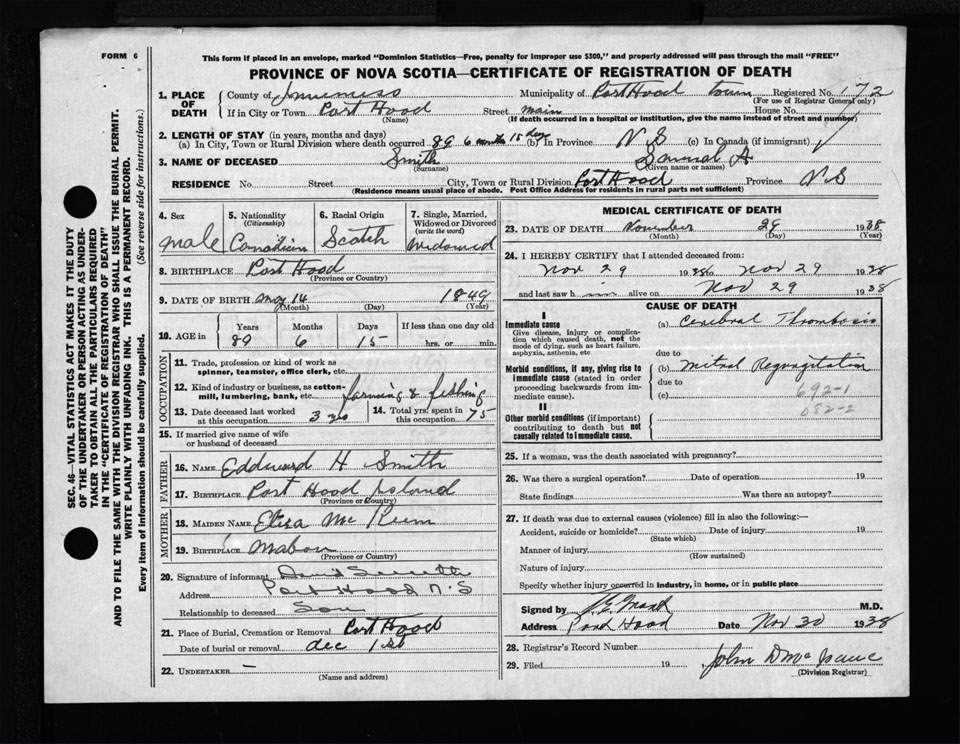 FORM 6
This form if placed in an envelope, marked "Dominion Statistics—Free, penalty for improper use $300," and properly addressed will pass through the mail "FREE"
PROVINCE OF NOVA SCOTIA—CERTIFICATE OF REGISTRATION OF DEATH
SEC. 46—VITAL STATISTICS ACT MAKES IT THE DUTY
OF THE UNDERTAKER OR PERSON ACTING AS UNDER-
TAKER TO OBTAIN ALL THE PARTICULARS REQUIRED
IN THE "CERTIFICATE OF REGISTRATION OF DEATH"
AND TO FILE THE SAME WITH THE DIVISION REGISTRAR WHO SHALL ISSUE THE BURIAL PERMIT.
WRITE PLAINLY WITH UNFADING INK. THIS IS A PERMANENT RECORD.
Every item of Information should be carefully supplied. (See reverse side for instructions.)
1. PLACE OF DEATH
County of Inverness Municipality of Port Hood town Registered No. 172
(For use of Registrar General only)
If in City or Town Port Hood Street main House No.
(Name) (If death occurred in a hospital or institution, give the name instead of street and number)
2. LENGTH OF STAY (in years, months and days)
(a) In City, Town or Rural Division where death occurred 89 6 months 15 days (b) In Province N S (c) In Canada (if immigrant)
3. NAME OF DECEASED Smith Samuel A
(Surname) (Given name or names)
RESIDENCE No. Street City, Town or Rural Division Port Hood Province N S
(Residence means usual place of abode. Post Office Address for residents in rural parts not sufficient)
4. Sex
male
5. Nationality (Citizenship)
Canadian
6. Racial Origin
Scotch
7. Single, Married, Widowed or Divorced (write the word)
Widowed
8. BIRTHPLACE Port Hood
(Province or Country)
9. DATE OF BIRTH May 14 1849
(Month) (Day) (Year)
10. AGE in
Years Months Days If less than one day
89 6 15 hrs. or min.
OCCUPATION
11. Trade, profession or kind of work as spinner, teamster, office clerk, etc.
12. Kind of industry or business, as cotton-mill, lumbering, bank, etc. farming & fishing
13. Date deceased last worked at this occupation 3 14. Total yrs. spent in this occupation 75
15. If married give name of wife or husband of deceased
FATHER
16. NAME Eddward H Smith
17. BIRTHPLACE Port Hood Island
(Province or Country)
MOTHER
18. MAIDEN NAME Eliza Mc Keen
19. BIRTHPLACE Mabou
(Province or Country)
20. Signature of informant Smith
Address Port Hood N.S
Relationship to deceased Son
21. Place of Burial, Cremation or Removal Port Hood
Date of burial or removal Dec 1st
22. UNDERTAKER —
(Name and address)
MEDICAL CERTIFICATE OF DEATH
23. DATE OF DEATH November 29 1938
(Month) (Day) (Year)
24. I HEREBY CERTIFY that I attended deceased from:
Nov 29 1938 to Nov 29 1938
and last saw him alive on Nov 29 1938
CAUSE OF DEATH
I
Immediate cause
Give disease, injury or complication which caused death, not the mode of dying, such as heart failure, asphyxia, asthenia, etc
(a) Cerebral Thrombosis
due to
Morbid conditions, if any, giving rise to immediate cause (stated in order proceeding backwards from immediate cause).
(b) Mitral Regurgitation
due to
(c)
692-1
082-2
II
Other morbid conditions (if important) contributing to death but not causally related to immediate cause.
25. If a woman, was the death associated with pregnancy?
26. Was there a surgical operation? Date of operation 19
State findings Was there an autopsy?
27. If death was due to external causes (violence) fill in also the following:—
Accident, suicide or homicide? Date of injury 19
(State which)
Manner of injury
(How sustained)
Nature of injury
Specify whether injury occurred in industry, in home, or in public place
Signed by M.D.
Address Port Hood Date Nov 30 1938
28. Registrar's Record Number
29. Filed 19 John D Mc Isaac
(Division Registrar)